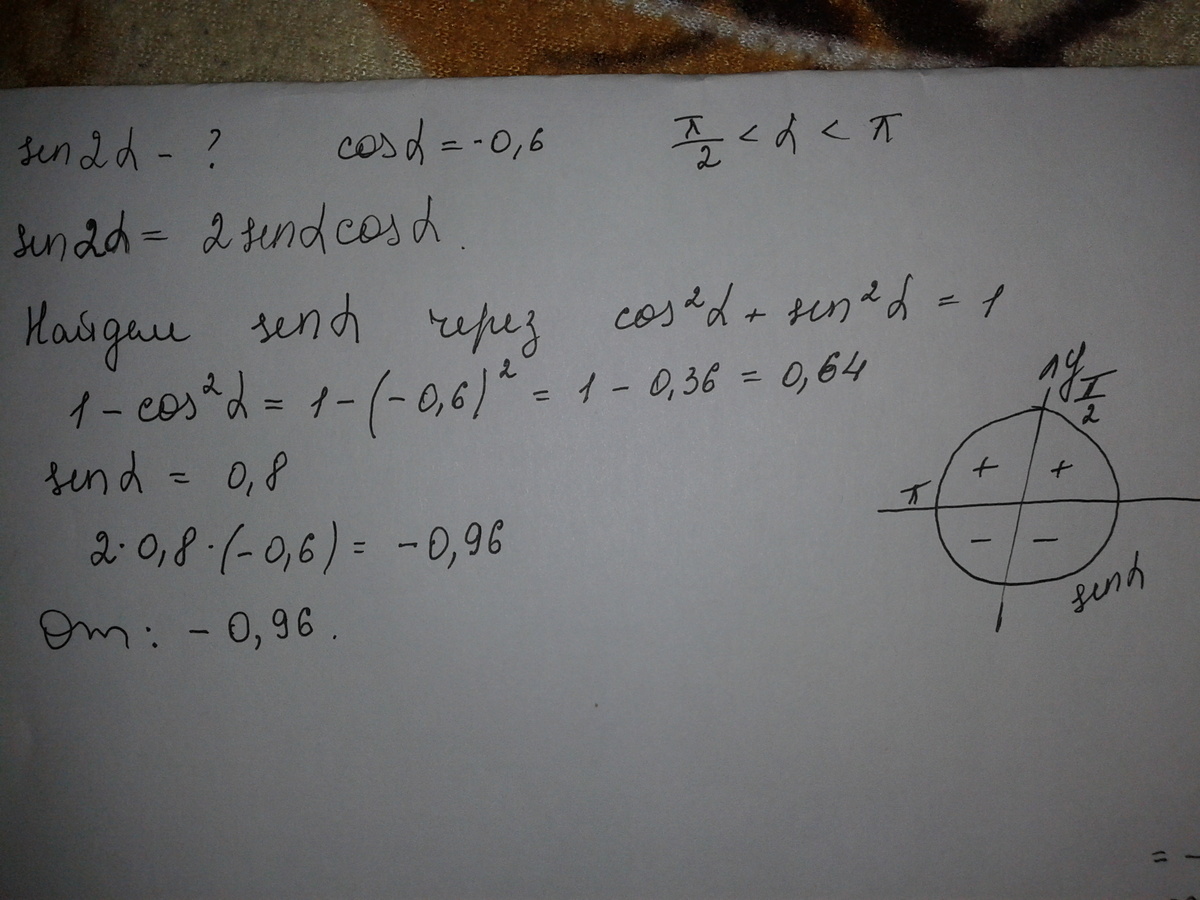 sin2α - ?   cosα = -0,6   π/2 < α < π
sin2α = 2sinαcosα.
Найдем sinα через cos²α + sin²α = 1
1 - cos²α = 1 - (-0,6)² = 1 - 0,36 = 0,64
sinα = 0,8
2·0,8·(-0,6) = -0,96
От: -0,96.
y
π/2
+ +
π
- -
sinα
= -